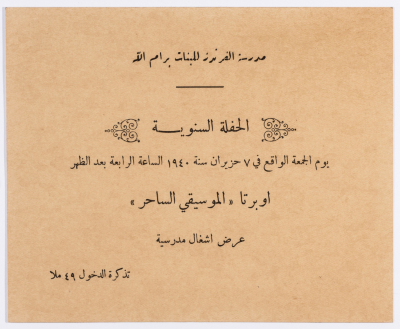 مدرسة الفرندز للبنات برام الله
الحفلة السنوية
يوم الجمعة الواقع في ٧ حزيران سنة ١٩٤٠ الساعة الرابعة بعد الظهر
اوبرتا «الموسيقي الساحر»
عرض اشغال مدرسية
تذكرة الدخول ٤٩ ملا